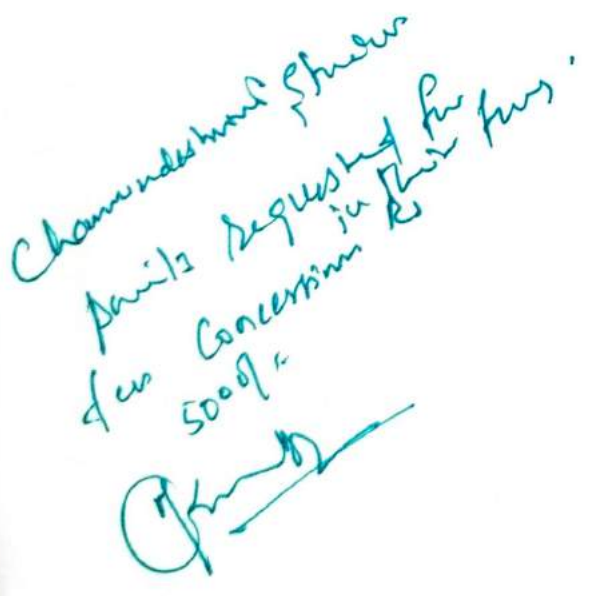 Chamundeshwari Studus
parents requested for
fees Concession in their fees.
Rs
5000/-